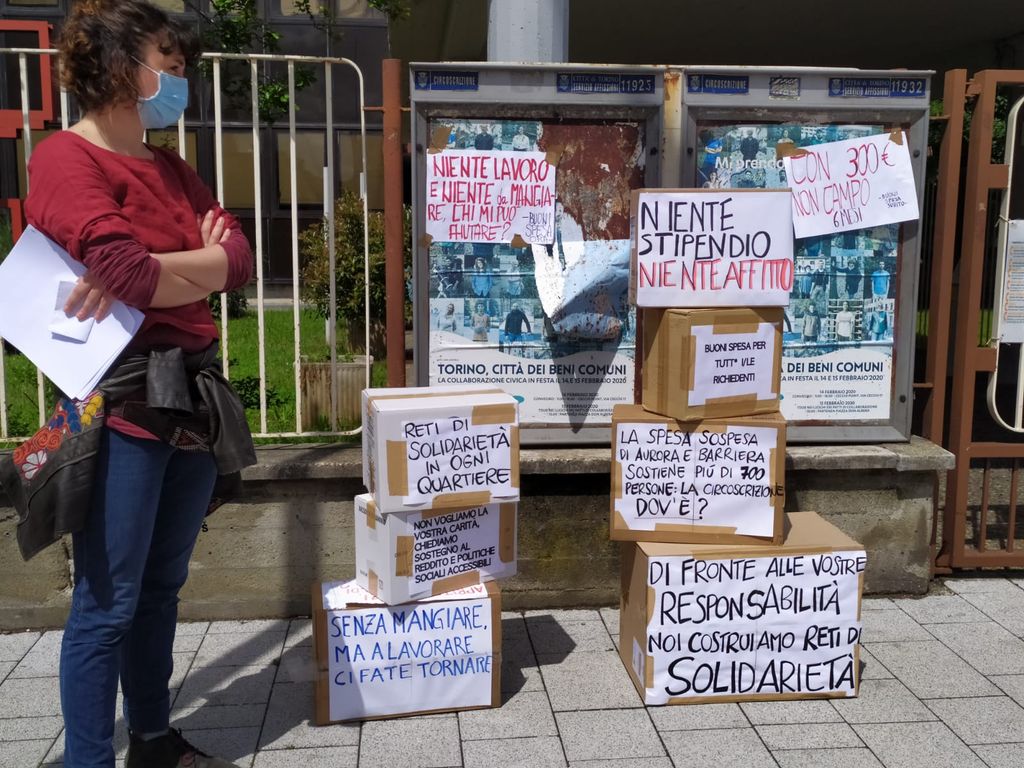 CIRCOSCRIZIONE
CITTÀ DI TORINO
SERVIZIO AFFISSIONI
11925
CIRCOSCRIZIONE
CITTÀ DI TORINO
SERVIZIO AFFISSIONI
11932
NIENTE LAVORO
E NIENTE da MANGIA-
RE, CHI MI PUO'
AIUTARE?
-BUONI
SPESA
SUBITO-
Mi prendo
CON 300€
NON CAMPO
6 MESI
-BUONI
SPESA
SUBITO-
TORINO, CITTÀ DEI BENI COMUNI
LA COLLABORAZIONE CIVICA IN FESTA IL 14 E 15 FEBBRAIO 2020
DEI BENI COMUNI
CA IN FESTA IL 14 E 15 FEBBRAIO 2020
14 FEBBRAIO 2020
15 FEBBRAIO 2020
NIENTE
STIPENDIO
NIENTE AFFITTO
BUONI SPESA PER
TUTT* I/LE
RICHIEDENTI
LA SPESA SOSPESA
DI AURORA E BARRIERA
SOSTIENE PIÚ DI 700
PERSONE: LA CIRCOSCRIZIONE
DOV'È?
DI FRONTE ALLE VOSTRE
RESPONSABILITÀ
NOI COSTRUIAMO RETI DI
SOLIDARIETÀ
RETI DI
SOLIDARIETÀ
IN OGNI
QUARTIERE
NON VOGLIAMO LA
VOSTRA CARITÀ,
CHIEDIAMO
SOSTEGNO AL
REDDITO E POLITICHE
SOCIALI ACCESSIBILI
SENZA MANGIARE,
MA A LAVORARE
CI FATE TORNARE